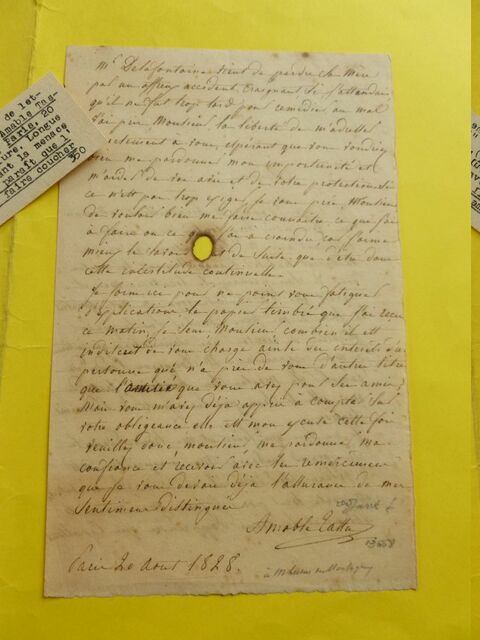 Mr Delafontaine vient de perdre sa Mère
par un affreux accident. Craignant de l'attendre
qu'il ne fut trop tard pour remédier au mal
j'ai pris Monsieur la liberté de m'adresser
directement à vous, espérant que vous voudrez
bien me pardonner mon importunité et
m'aider de vos avis et de votre protection si
ce n'est pas trop exiger, je vous prie, Monsieur
de vouloir bien me faire connaître ce que j'ai
à faire ou ce que j'ai à craindre car j'aime
mieux le savoir de suite que d'être dans
cette incertitude continuelle
Je joins ici pour ne point vous fatiguer
d'explications le papier timbré que j'ai reçu
ce matin, je sens, Monsieur combien il est
indiscret de vous charger ainsi des intérêts d'une
personne qui n'a près de vous d'autre titre
que l'amitié que vous avez pour ses amis
Mais vous m'avez déjà appris à compter sur
votre obligeance elle est mon excuse cette fois
veuillez donc, monsieur, me pardonner ma
confiance et recevoir avec les remerciements
que je vous devais déjà l'assurance de mes
Sentiments distingués
Amable Tastu
Paris 20 Août 1828.
de let-
Amable Tas-
Paris, 20
ure. Longue
ant la menace
paraît que l'
fairs coucher
350